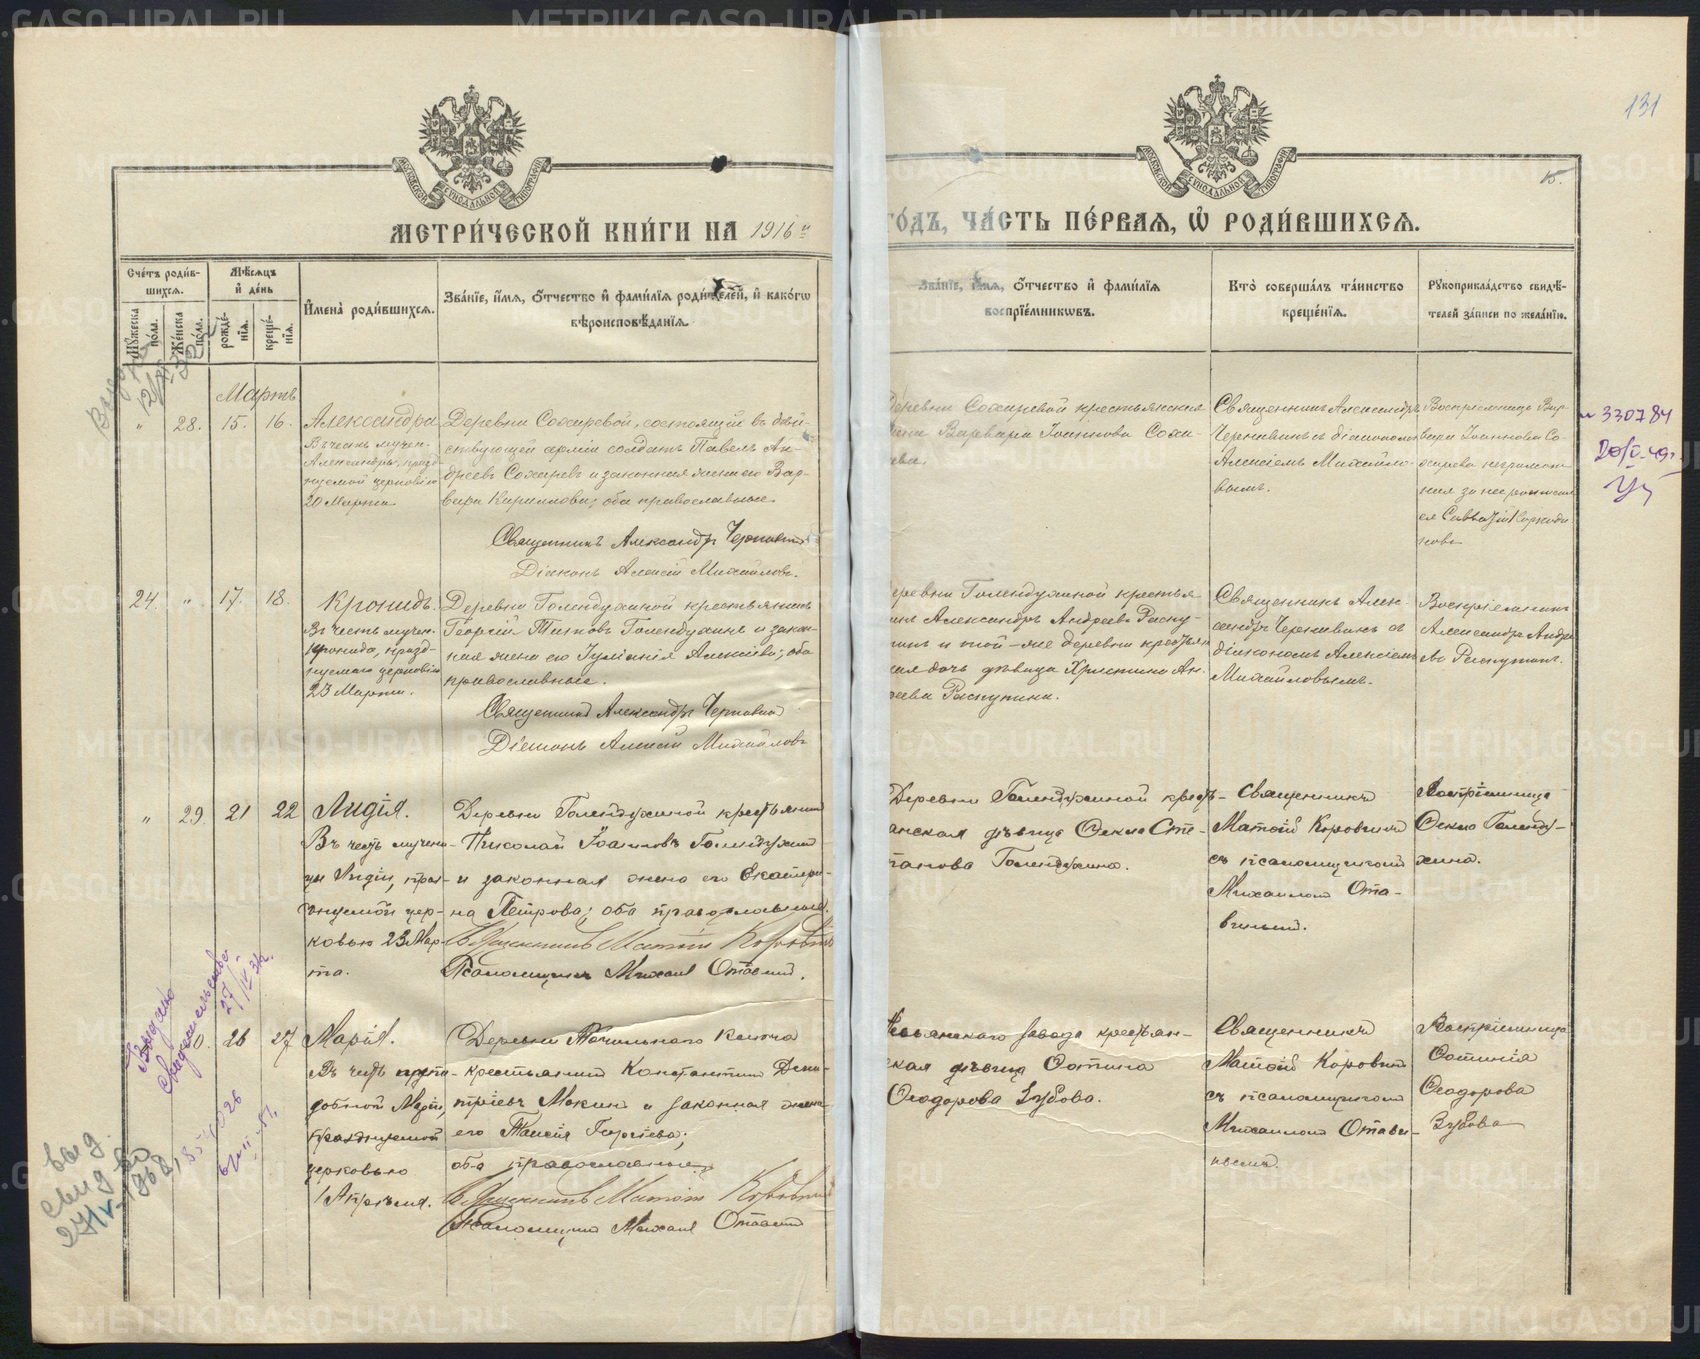 131
15.
МЕТРИ́ЧЕСКОЙ КНИ́ГИ НА 1916 й
ГО́ДЪ, ЧА́СТЬ ПЕ́РВАЯ, Ѽ РОДИ́ВШИХСЯ.
Сче́тъ роди́в-
шихся.
Мѣ́сяцъ
и҆ де́нь
Му́жеска
по́ла.
Же́нска
по́ла.
рожде́-
нїя.
креще́-
нїя.
И҆мена̀ роди́вшихся.
Зва́нїе, и҆́мя, ѻ҆́тчество и҆ фамі́лїя роди́телей, и҆ како́гѡ
вѣроисповѣ́данїя.
Зва́нїе, и҆́мя, ѻ҆́тчество и҆ фамі́лїя
воспрїе́мникѡвъ.
Кто̀ соверша́лъ та́инство
креще́нїя.
Рꙋкоприкла́дство свидѣ́-
телей за́писи по жела́нїю.
Мартъ
" 28. 15. 16.
Александра
Въ честь мучен.
Александры, празд-
нуемой церковію
20 Марта
Деревни Сохаревой, состоящій въ дѣй-
ствующей арміи солдатъ Павелъ Ан-
дреевъ Сохаревъ и законная жена его Вар-
вара Кириллова; оба православные.
Священникъ Александръ Чернавинъ
Діаконъ Алексій Михайловъ.
Деревни Сохаревой крестьянская
Варвара Іоаннова Соха-
рева.
Священникъ Александръ
Чернавинъ съ діакономъ
Алексіемъ Михайло-
вымъ.
Воспріемница Вар-
вара Іоаннова Со-
харева неграмот-
ная за нее
330784
24. " 17. 18.
Кронидъ.
Въ честь мучен.
Кронида, празд-
нуемаго церковію
23 Марта.
Деревни Голендухиной крестьянинъ
Георгій Титовъ Голендухинъ и закон-
ная жена его Іуліанія Алексіева; оба
православные.
Священникъ Александръ Чернавинъ
Діаконъ Алексій Михайловъ
деревни Голендухиной крестья-
нинъ Александръ Андреевъ Распу-
тинъ и той-же деревни крестьян-
ская дочь дѣвица Христина Ан-
дреева Распутина.
Священникъ Алек-
сандръ Чернавинъ съ
діакономъ Алексіемъ
Михайловымъ.
Воспріемникъ
Александръ Андре-
евъ Распутинъ.
" 29 21 22
Лидія.
Въ честь мучени-
цы Лидіи, праз-
днуемой цер-
ковью 23 Мар-
та.
Деревни Голендухиной крестьянинъ
Николай Іоанновъ Голендухинъ
и законная жена его Екатери-
на Петрова; оба православные.
Священникъ Матѳій Коровинъ
Псаломщикъ Михаилъ
Деревни Голендухиной кресть-
янская дѣвица Ѳекла Сте-
панова Голендухина.
Священникъ
Матѳій Коровинъ
съ псаломщикомъ
Михаиломъ
Воспріемница
Ѳекла Голенду-
хина.
26 27
Марія.
Въ честь препо-
добной Маріи,
празднуемой
церковью
1 Апрѣля.
Деревни Точильнаго Ключа
крестьянинъ Константинъ Дими-
тріевъ Мокинъ и законная жена
его Таисія Георгіева;
оба православные
Священникъ Матѳій Коровинъ
Псаломщикъ Михаилъ
завода крестьян-
ская дѣвица Фотина
Ѳеодорова Зубова.
Священникъ
Матѳій Коровинъ
съ псаломщикомъ
Михаиломъ
Воспріемница
Фотинія
Ѳеодорова
Зубова
Выдано
свидетельство
METRIKI.GASO-URAL.RU